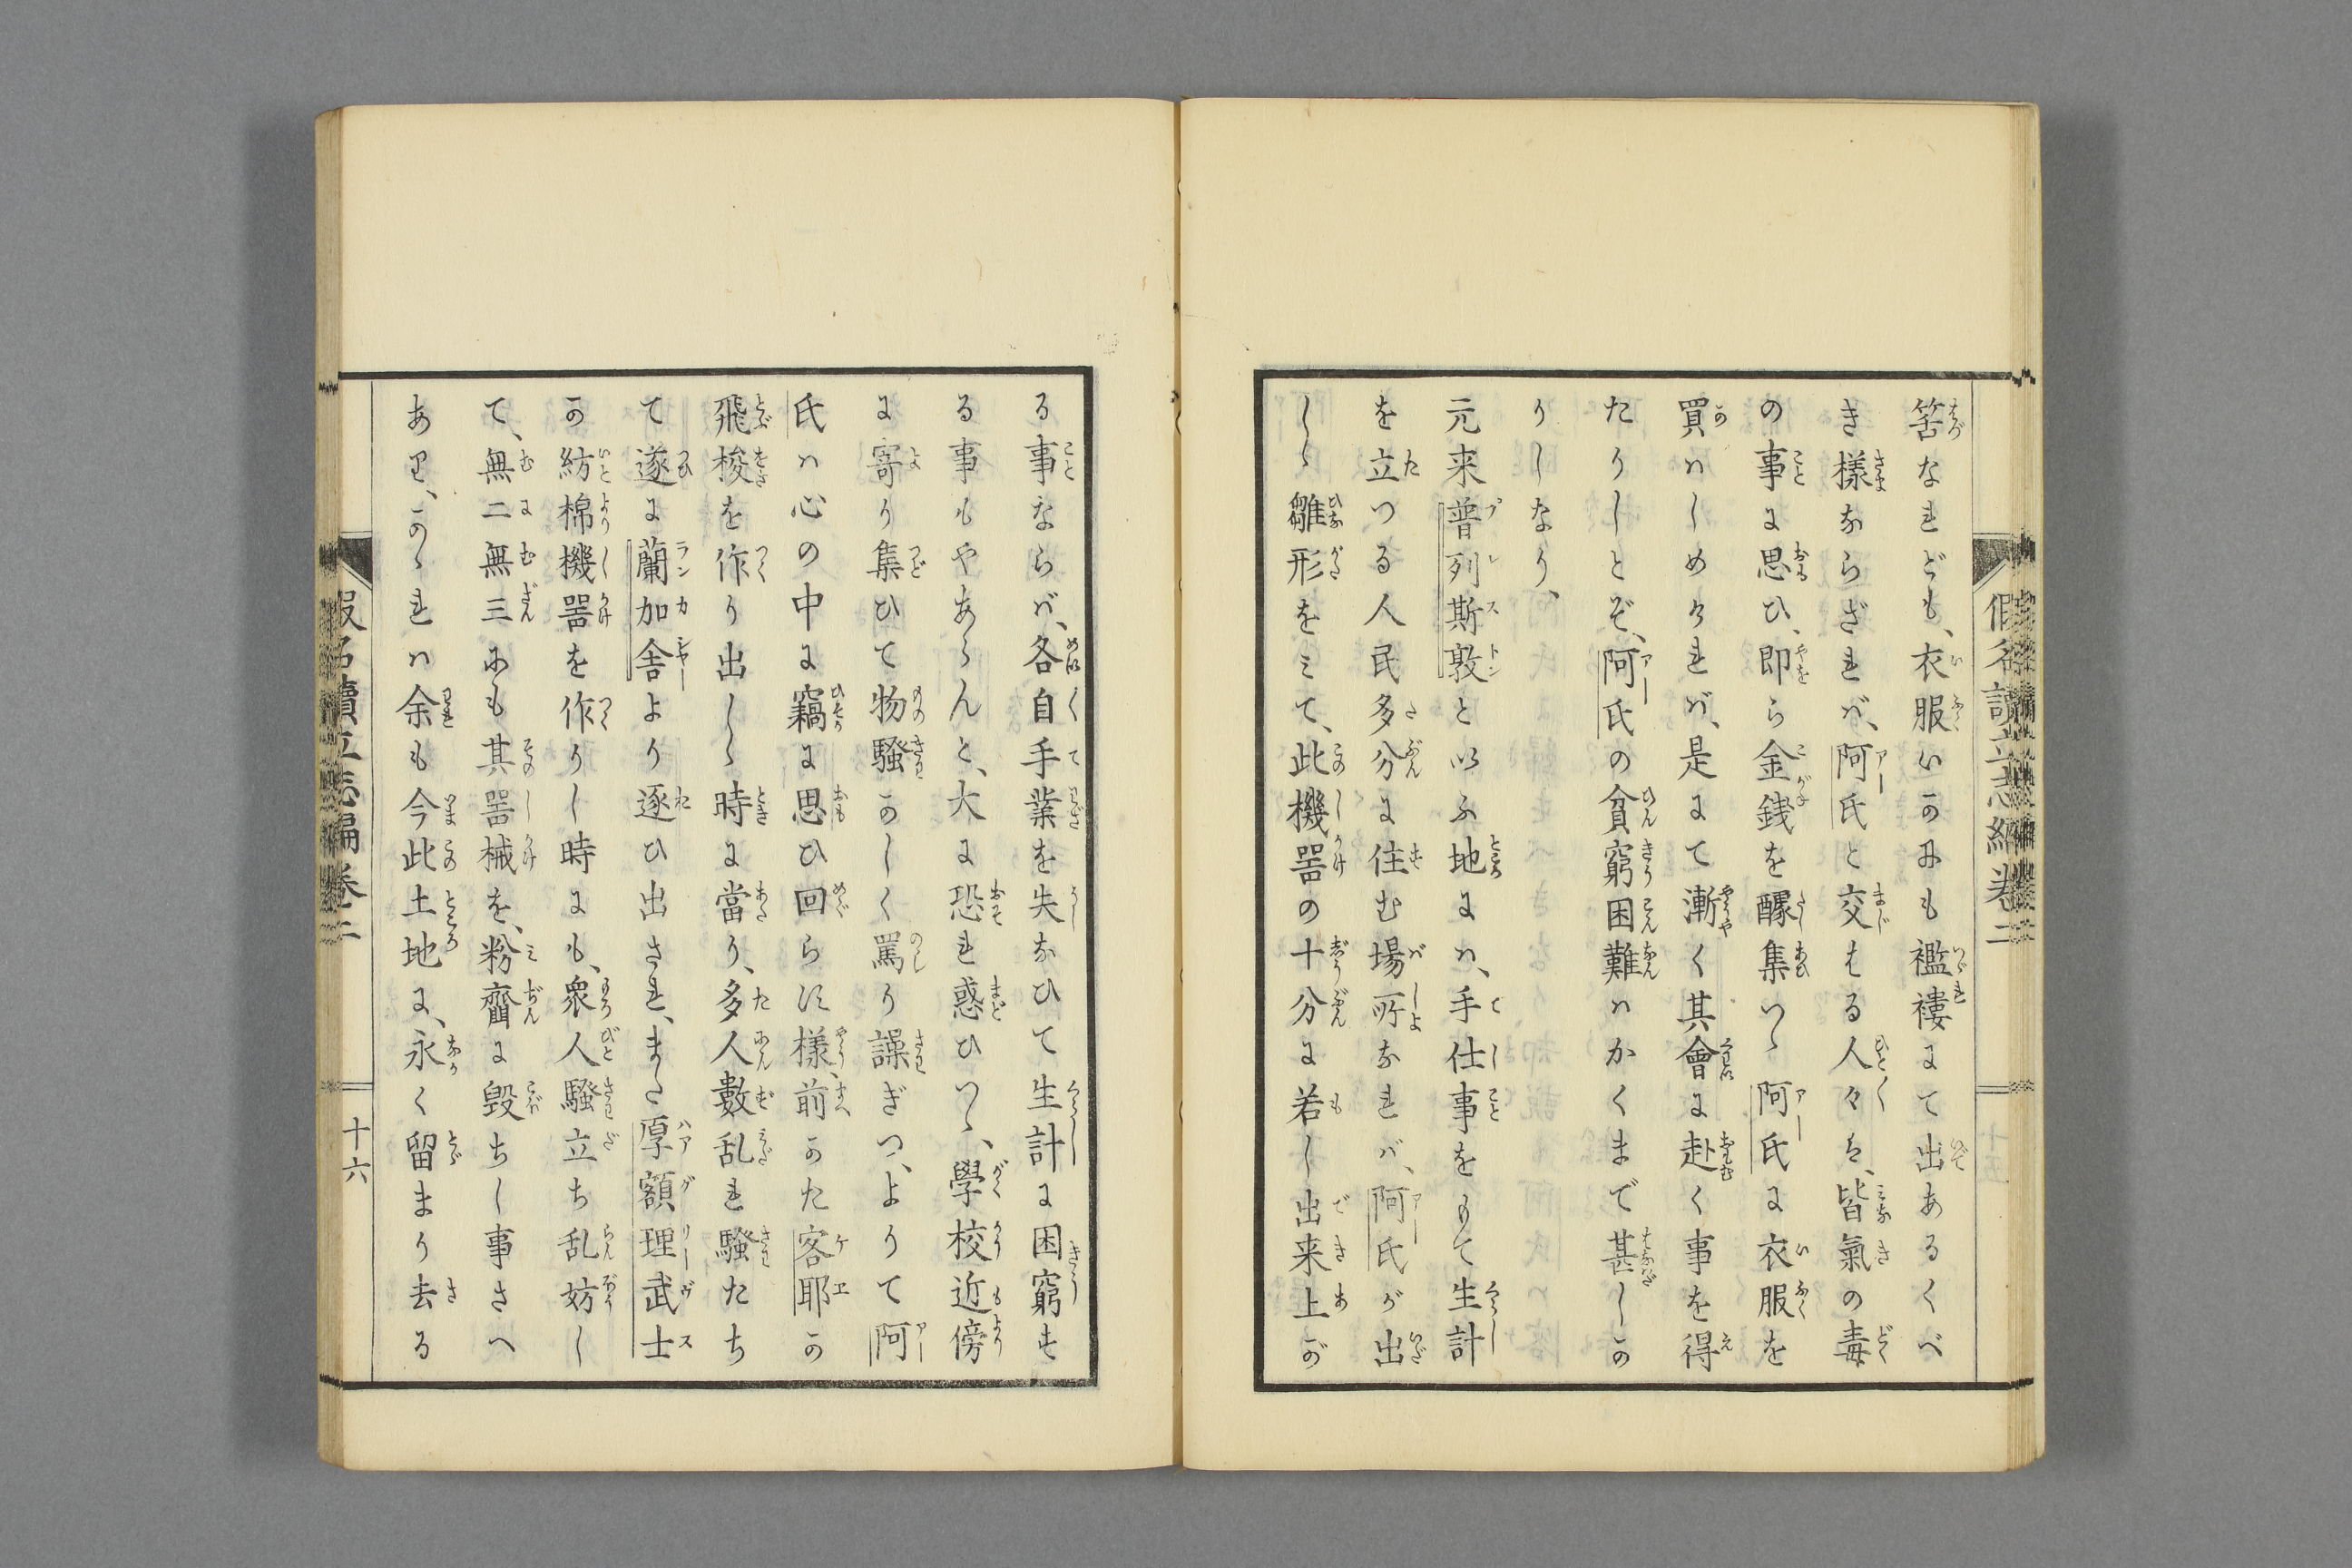 筈なれども、衣服いかにも襤褸にて出あるくべ
き樣ならざれバ、阿氏と交はる人々は、皆氣の毒
の事に思ひ、即ら金銭を醵集いゝ阿氏に衣服を
買ハしめけれバ、是にて漸く其會に赴く事を得
たりしとぞ、阿氏の貧窮困難ハかくまで甚しか
りしなり、
元来普列斯敦と以ふ地にハ、手仕事をもて生計
を立つる人民多分に住む場所なれバ、阿氏が出
しゝ雛形をミて、此機噐の十分に若し出来上が
る事ならバ、各自手業を失なひて生計に困窮す
る事もやあらんと、大に恐れ惑ひつゝ、學校近傍
に寄り集ひて物騷かしく罵り譟ぎつ、よりて阿
氏ハ心の中に竊に思ひ回らす樣、前かた客耶の
飛梭を作り出しゝ時に當り、多人數乱れ騷たち
て遂に蘭加舎より逐ひ出され、また厚額理武士
の紡棉機噐を作りし時にも、衆人騷立ち乱妨し
て、無二無三にも其噐械を、粉齏に毀ちし事さへ
あり、かゝれハ余も今此土地に、永く留まり去る
假名讀立志編卷二
十六